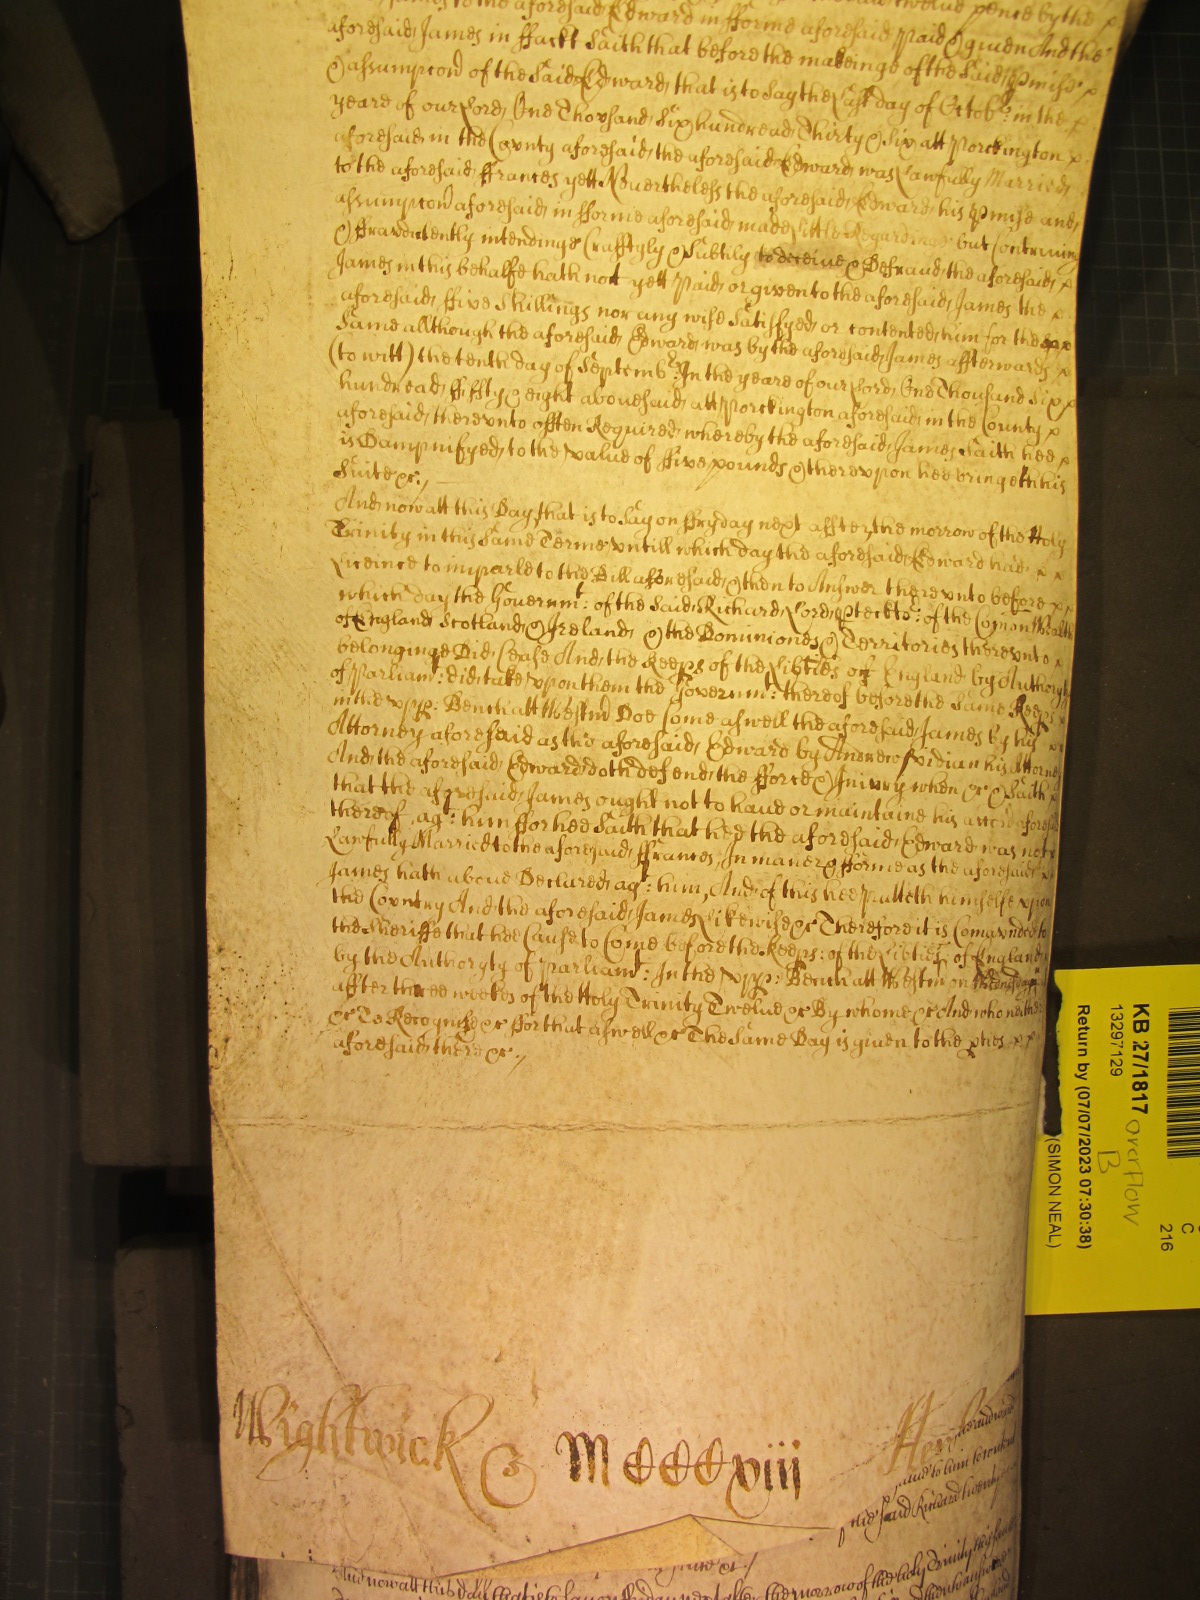 James to the aforesaid Edward in fforme aforesaid paid & given And the
aforesaid James in ffackt Saith that before the makeinge of the Said pmise
& assumpcon of the Said Edward that is to Say the Last day of Octobr: in the
yeare of our Lord One Thousand Six hundread Thirty & Six att Porckington
aforesaid in the County aforesaid the aforesaid Edward was Lawfully Married
to the aforesaid ffrances yett Nevertheless the aforesaid Edward his pmise and
assumpcon aforesaid in fforme aforesaid made Little Regardinge but Contriving
& ffravdelently intendinge Crafftyly & Subtily to deceive & Defraud the aforesaid
James in this behalfe hath not yett Paid or given to the aforesaid James the
aforesaid ffive Shillings nor any wise Satisfyed or contented him for the
Same allthough the aforesaid Edward was by the aforesaid James affterwards
(to witt) the tenth day of Septembr: In the yeare of our Lord One Thousand Six
hundread ffiffty & eight abovesaid att Porckington aforesaid in the County
aforesaid therevnto offten Required whereby the aforesaid James Saith hee
is Dampnifyed to the value of ffive pounds & therevpon hee bringeth his
Suite &c:/
And now att this Day that is to Say on ffryday next affter the morrow of the Holy
Trinity in this Same Terme vntill which day the aforesaid Edward had
Liceince to imparle to the Bill afforesaid & then to Answer therevnto before
which day the Governmt: of the Said Richard Lord Ptecktor: of the Comon Wealth
of England Scotland & Ireland & the Dominiones & Territories therevnto
belonginge Did Cease And the Keeps of the Libties of England by Authoryty
of Parliamt: did take vpon them the Governmt: thereof before the Same Keeps
in the vpp: Bench att Westmr Doe Come aswell the aforesaid James by his
Attorney aforesaid as the aforesaid Edward by Andrew Vidian his Attorney
And the aforesaid Edward doth defend the fforce & Iniury when &c & Saith
that the aforesaid James ought not to have or maintaine his accon aforesaid
thereof agt: him ffor hee Saith that hee the aforesaid Edward was not
Lawfully Married to the aforesaid ffrances, In maner & fforme as the aforesaid
James hath above Declared agt: him, And of this hee Putteth himselfe vpon
the Country And the aforesaid James Likewise &c Therefore it is Comaunded to
the Sheriffe that hee Cause to Come before the Keeps: of the Libties of England
by the Authoryty of Parliamt: In the vpp: Bench att Westmr on Wednesday
affter three weekes of the Holy Trinity Twelve &c By whome &c And who neither
&c To Recognise &c ffor that aswell &c The Same Day is given to the pties
aforesaid there &c:/
Wightwick & MCCCxviii
to him
the said Richard twenty
And now att this day that is to say on ffryday next after the morrow of the holy Trinity
KB 27/1817 overflow
B
13297129
Return by (07/07/2023 07:30:38)
(SIMON NEAL)
C
216